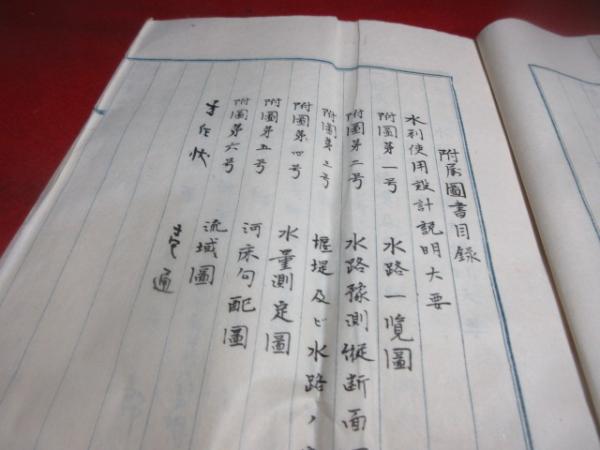 附属圖書目錄
水利使用設計説明大要
附圖第一号 水路一覧圖
附圖第二号 水路豫測縦断面
附圖第三号 堰堤及ビ水路ノ
附圖第四号 水量測定圖
附圖第五号 河床勾配圖
附圖第六号 流域圖